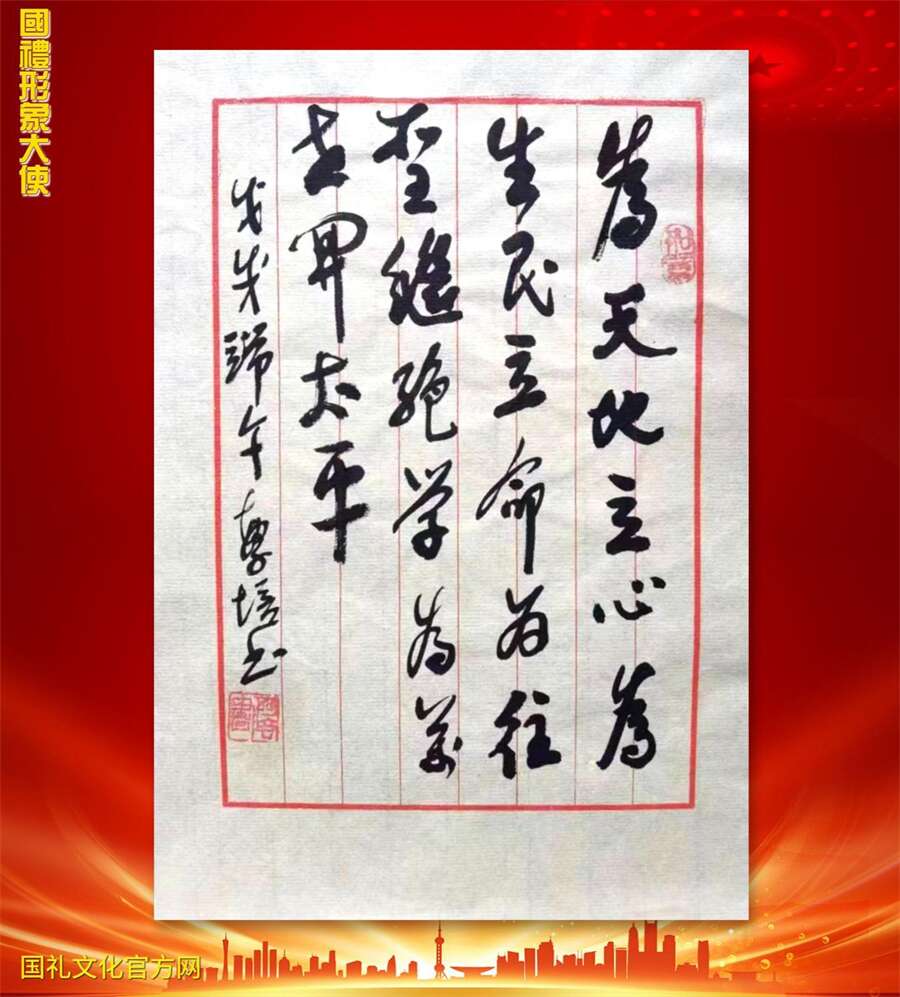 國禮形象大使
為天地立心為
生民立命为往
聖繼絕学为萬
世開太平
戊戌端午 培书
国礼文化官方网